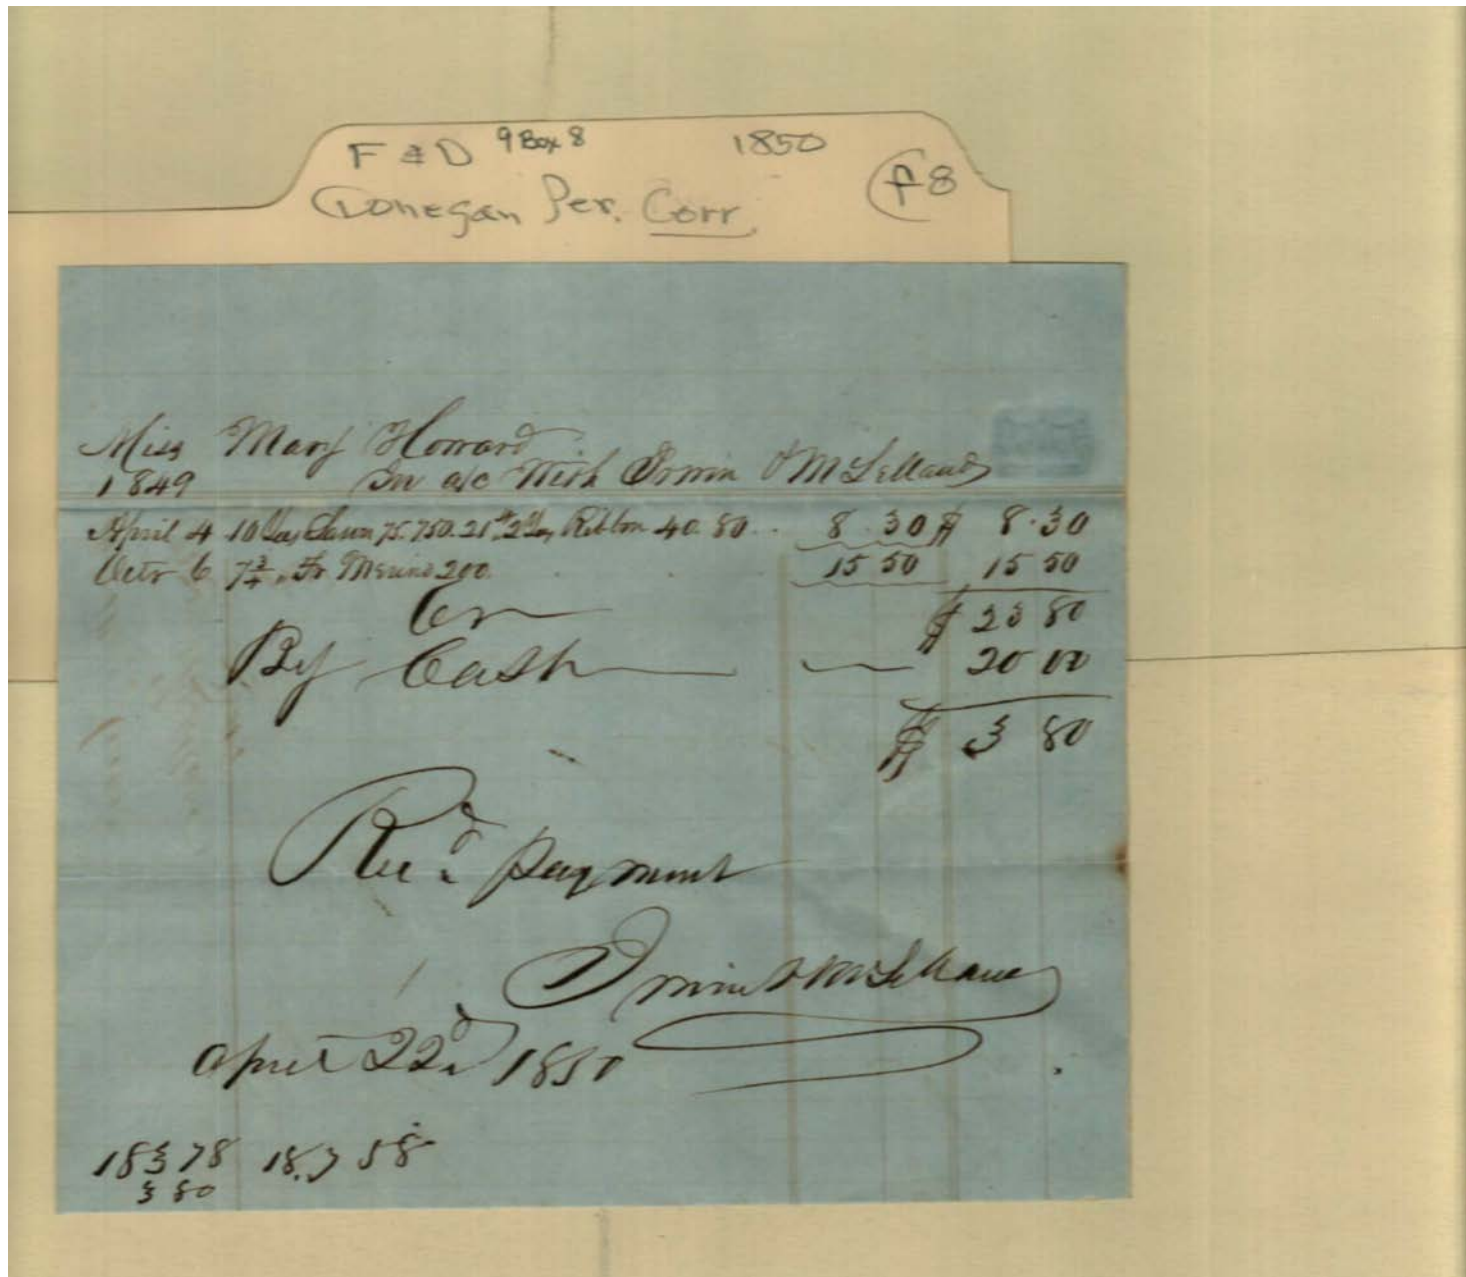 F & D 9 Box 8 1850
Donegan Per. Corr. f 8
Miss Mary Howard
1849 In a/c With Irwin & McLelland
April 4 10 Yds Lawn 75. 750. 21st 2 Yds Ribbon 40. 80 8.30 $ 8.30
Octr 6 7 3/4 " Fr Merino 200. 15 50 15 50
Cr $ 23 80
By Cash 20 00
$ 3 80
Recd. payment
Irwin & McLelland
April 22d 1850
183 78 18.7 58
3 80